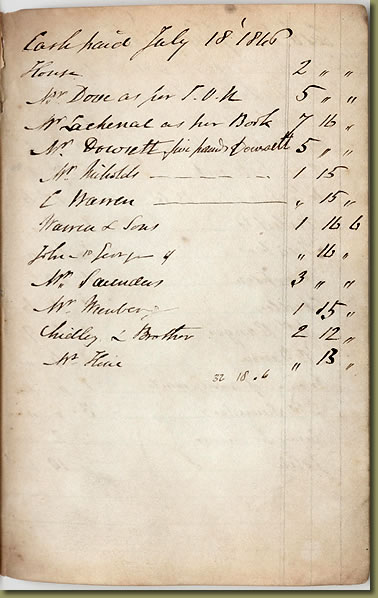 Cash paid July 18 1846
House 2 " "
Mr Dove as per I.O.U 5 " "
Mr Lachenal as per Book 7 16 "
Mr Dowsett five pounds Dowsett 5 " "
Mr Nicholds 1 15
C Warren " 15 "
Warren & Sons 1 16 6
John George " 16 "
Mr Saunders 3 " "
Mr 1 15 "
Chidley & Brother 2 12 "
Mr " 13 "
32 18 . 6